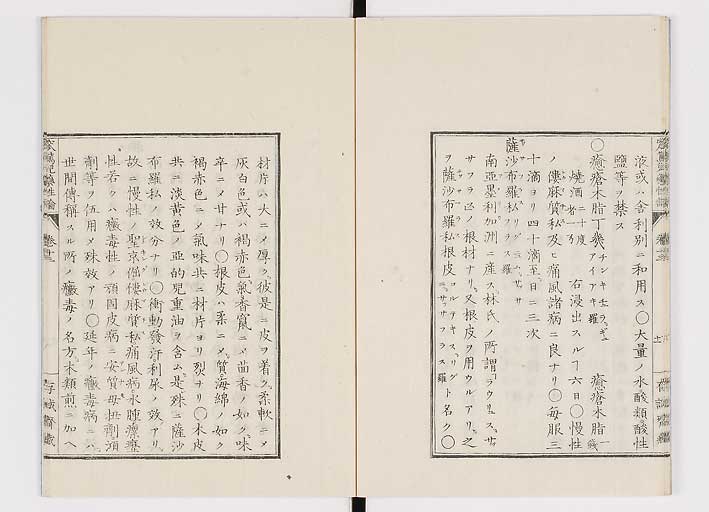 液或ハ舎利別ニ和用ス〇大量ノ水酸類酸性
鹽等ヲ禁ス
〇癒瘡木脂丁幾 チンキチュラ アイアキ羅 癒瘡木脂一
焼酒二十度 者一 右浸出スルヿ六日〇慢性
ノ僂麻質私及ヒ痛風諸病ニ良ナリ〇毎服三
十滴ヨリ四十滴至日ニ三次
薩沙布羅私
南亞墨利加洲ニ産ス林氏ノ所謂ラウリュス、サッ
サフラ ノ根材ナリ又根皮ヲ用ウルアリ之
ヲ薩沙布羅私根皮 コルテキス サッサフラス羅 ト名ク〇
材片ハ大ニメ厚ク彼是ニ皮ヲ著ク柔軟ニメ
灰白色或ハ褐赤色氣香竄ニメ茴香ノ如ク味
辛ニメ甘ナリ〇根皮ハ柔ニメ質海綿ノ如ク
褐赤色ニメ氣味共ニ材片ヨリ烈ナリ〇木皮
共ニ淡黄色ノ亞的兒重油ヲ含ム是殊ニ薩沙
布羅私ノ效分ナリ〇衝動發汗利尿ノ效アリ
故ニ慢性ノ聖京偏僂麻質私痛風病水腫
性若クハ黴毒性ノ頑固皮病ニ安質母扭劑
劑等ヲ伍用メ殊效アリ〇延年ノ黴毒病ニハ
世間傳稱スル所ノ黴毒ノ名方木類煎ニ加ヘ